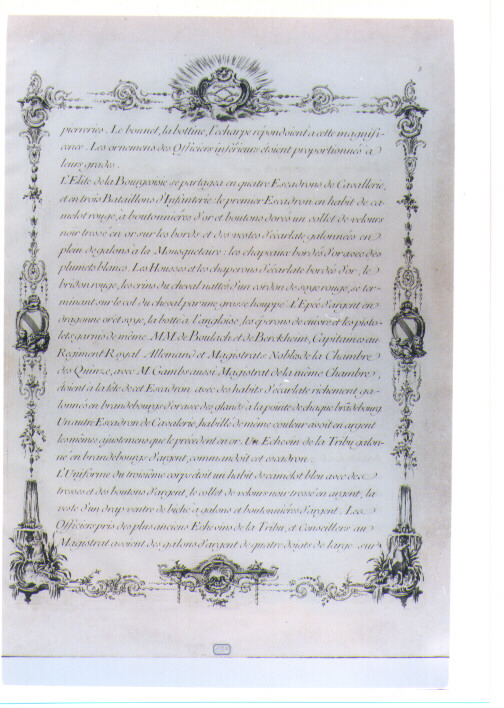 pierreries. Le bonnet, la bottine, l'echarpe répondoient a cette magnifi-
cence. Les ornemens des Officiers inférieurs étoient proportionnés a
leurs grades.
L'Elite de la Bourgeoisie se partagea en quatre Escadrons de Cavallerie,
et en trois Bataillons d'Infanterie: le premier Escadron en habit de ca-
melot rouge, a boutonnieres d'or et boutons dorés, un collet de velours
noir tressé en or sur les bords et des vestes d'écarlate, galonnées en
plein de galons à la Mousquetaire: les chapeaux bordés d'or avec des
plumets blancs. Les Housses et les chaperons d'écarlate bordés d'or, le
bridon rouge, les crins du cheval nattés d'un cordon de soye rouge, se ter-
minant sur le col du cheval par une grosse houppe. L'Epée d'argent en
dragonne or et soye, la botte à l'angloise, les éperons de cuivre et les pisto-
lets garnis de même. MM. de Boulach et de Berckheim, Capitaines au
Regiment Royal Allemand et Magistrats Nobles de la Chambre
des Quinze, avec M. Gambs aussi Magistrat de la même Chambre,
étoient à la tête de cet Escadron avec des habits d'écarlate richement ga-
lonnés en brandebourgs d'or avec des glands à la pointe de chaque brãdebourg
Un autre Escadron de Cavalerie, habillé de même couleur avoit en argent
les mêmes ajustemens que le précédent en or. Un Echevin de la Tribu, galon-
né en brandebourgs d'argent, commandoit cet escadron.
L'Uniforme du troisième corps étoit un habit de camelot bleu avec des
tresses et des boutons d'argent, le collet de velours noir tressé en argent, la
veste d'un drap ventre de biche à galons et boutonnieres d'argent. Les
Officiers pris des plus anciens Echevins de la Tribu, et Conseillers au
Magistrat avoient des galons d'argent de quatre doigts de large sur